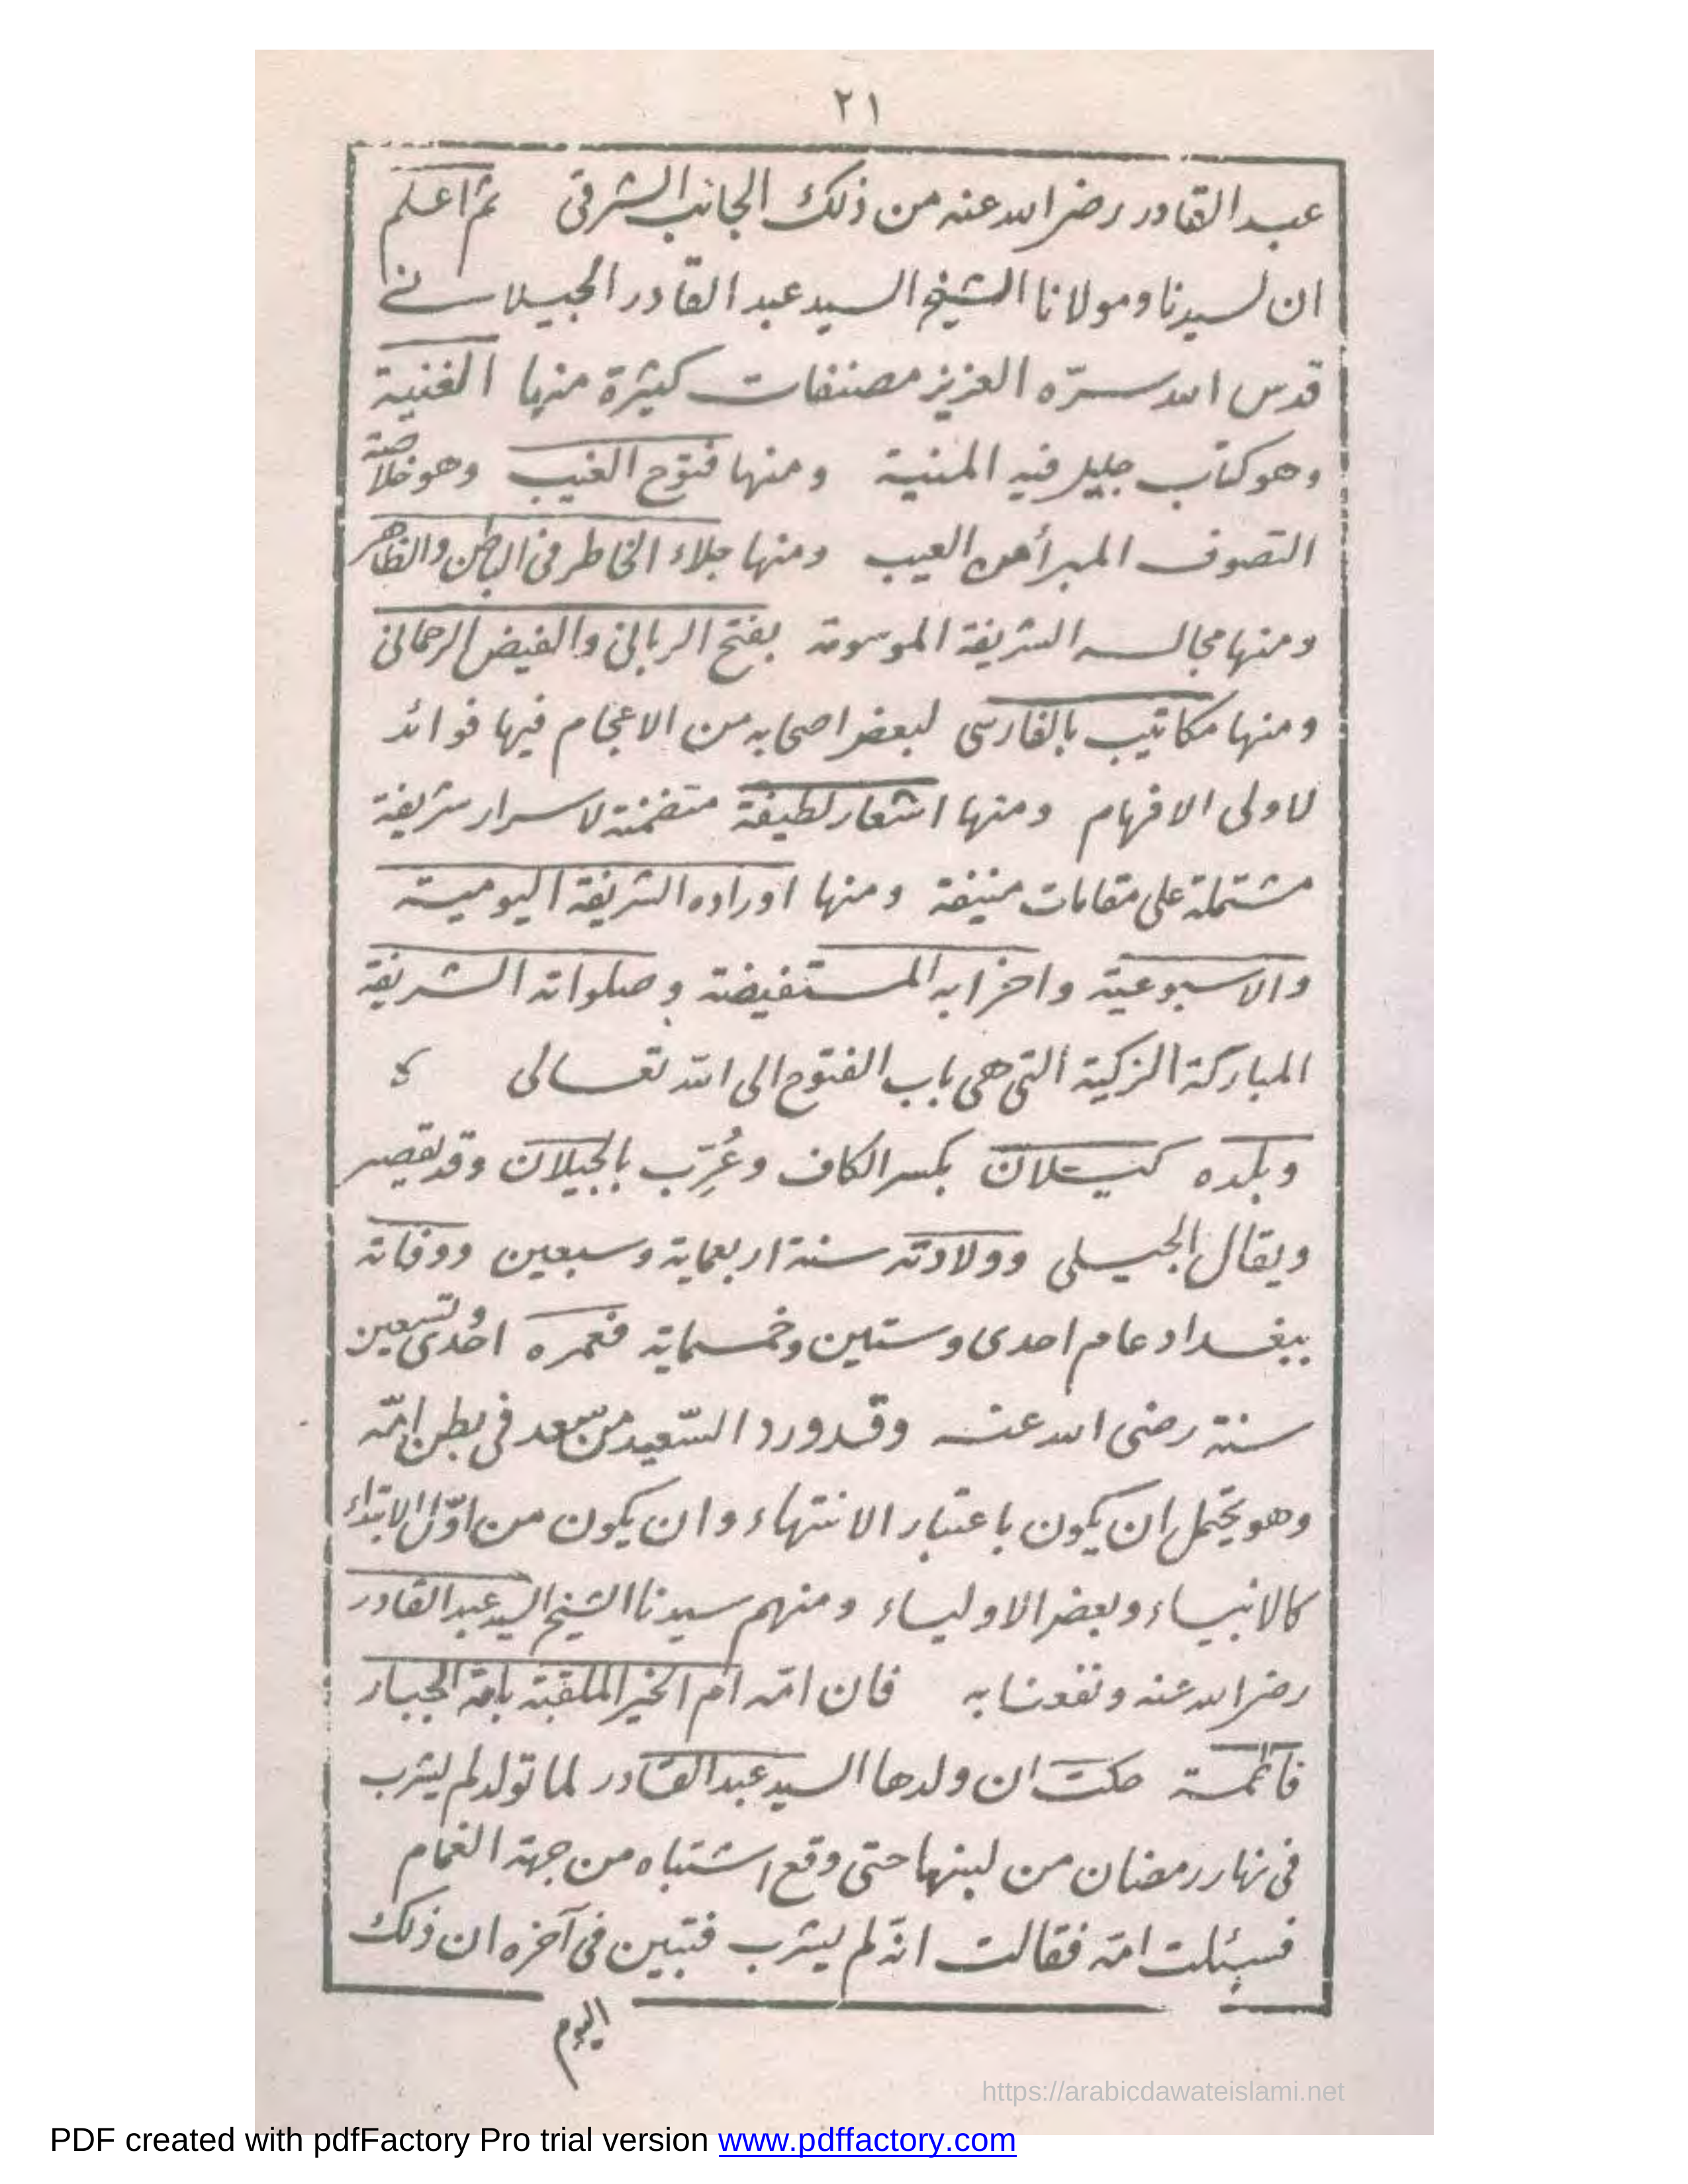 ٢١
عبد القادر رضي الله عنه من ذلك الجانب الشرقي ثم اعلم
ان لسيدنا ومولانا الشيخ السيد عبد القادر الجيلاني
قدس الله سرّه العزيز مصنفات كثيرة منها الغنية
وهو كتاب جليل فيه المنية ومنها فتوح الغيب وهو خلاصة
التصوف المبرأ من العيب ومنها جلاء الخاطر في الباطن والظاهر
ومنها مجالسه الشريفة الموسومة بفتح الرباني والفيض الرحماني
ومنها مكاتيب بالفارسى لبعض اصحابه من الاعجام فيها فوائد
لاولى الافهام ومنها اشعار لطيفة متضمنة لاسرار شريفة
مشتملة على مقامات منيفة ومنها اوراده الشريفة اليومية
والاسبوعية واحزابه المستفيضة وصلواته الشريفة
المباركة الزكية التى هى باب الفتوح الى الله تعالى
وبلده كيلان بكسر الكاف وعُرِّب بالجيلان وقد يقصر
ويقال الجيلى وولادته سنة اربعماية وسبعين ووفاته
ببغداد عام احدى وستين وخمسماية فعمره احدى وتسعين
سنة رضى الله عنه وقد ورد السّعيد من سعد فى بطن امّه
وهو يحتمل ان يكون باعتبار الانتهاء وان يكون من اوّل الابتداء
كالانبياء وبعض الاولياء ومنهم سيدنا الشيخ السيد عبد القادر
رضي الله عنه ونفعنا به فان امّه ام الخير الملقبة بامة الجبار
فاطمة حكت ان ولدها السيد عبد القادر لما تولد لم يشرب
فى نهار رمضان من لبنها حتى وقع اشتباه من جهة الغمام
فسئلت امّه فقالت انّه لم يشرب فتبين فى آخره ان ذلك
اليوم
https://arabicdawateislami.net
PDF created with pdfFactory Pro trial version www.pdffactory.com